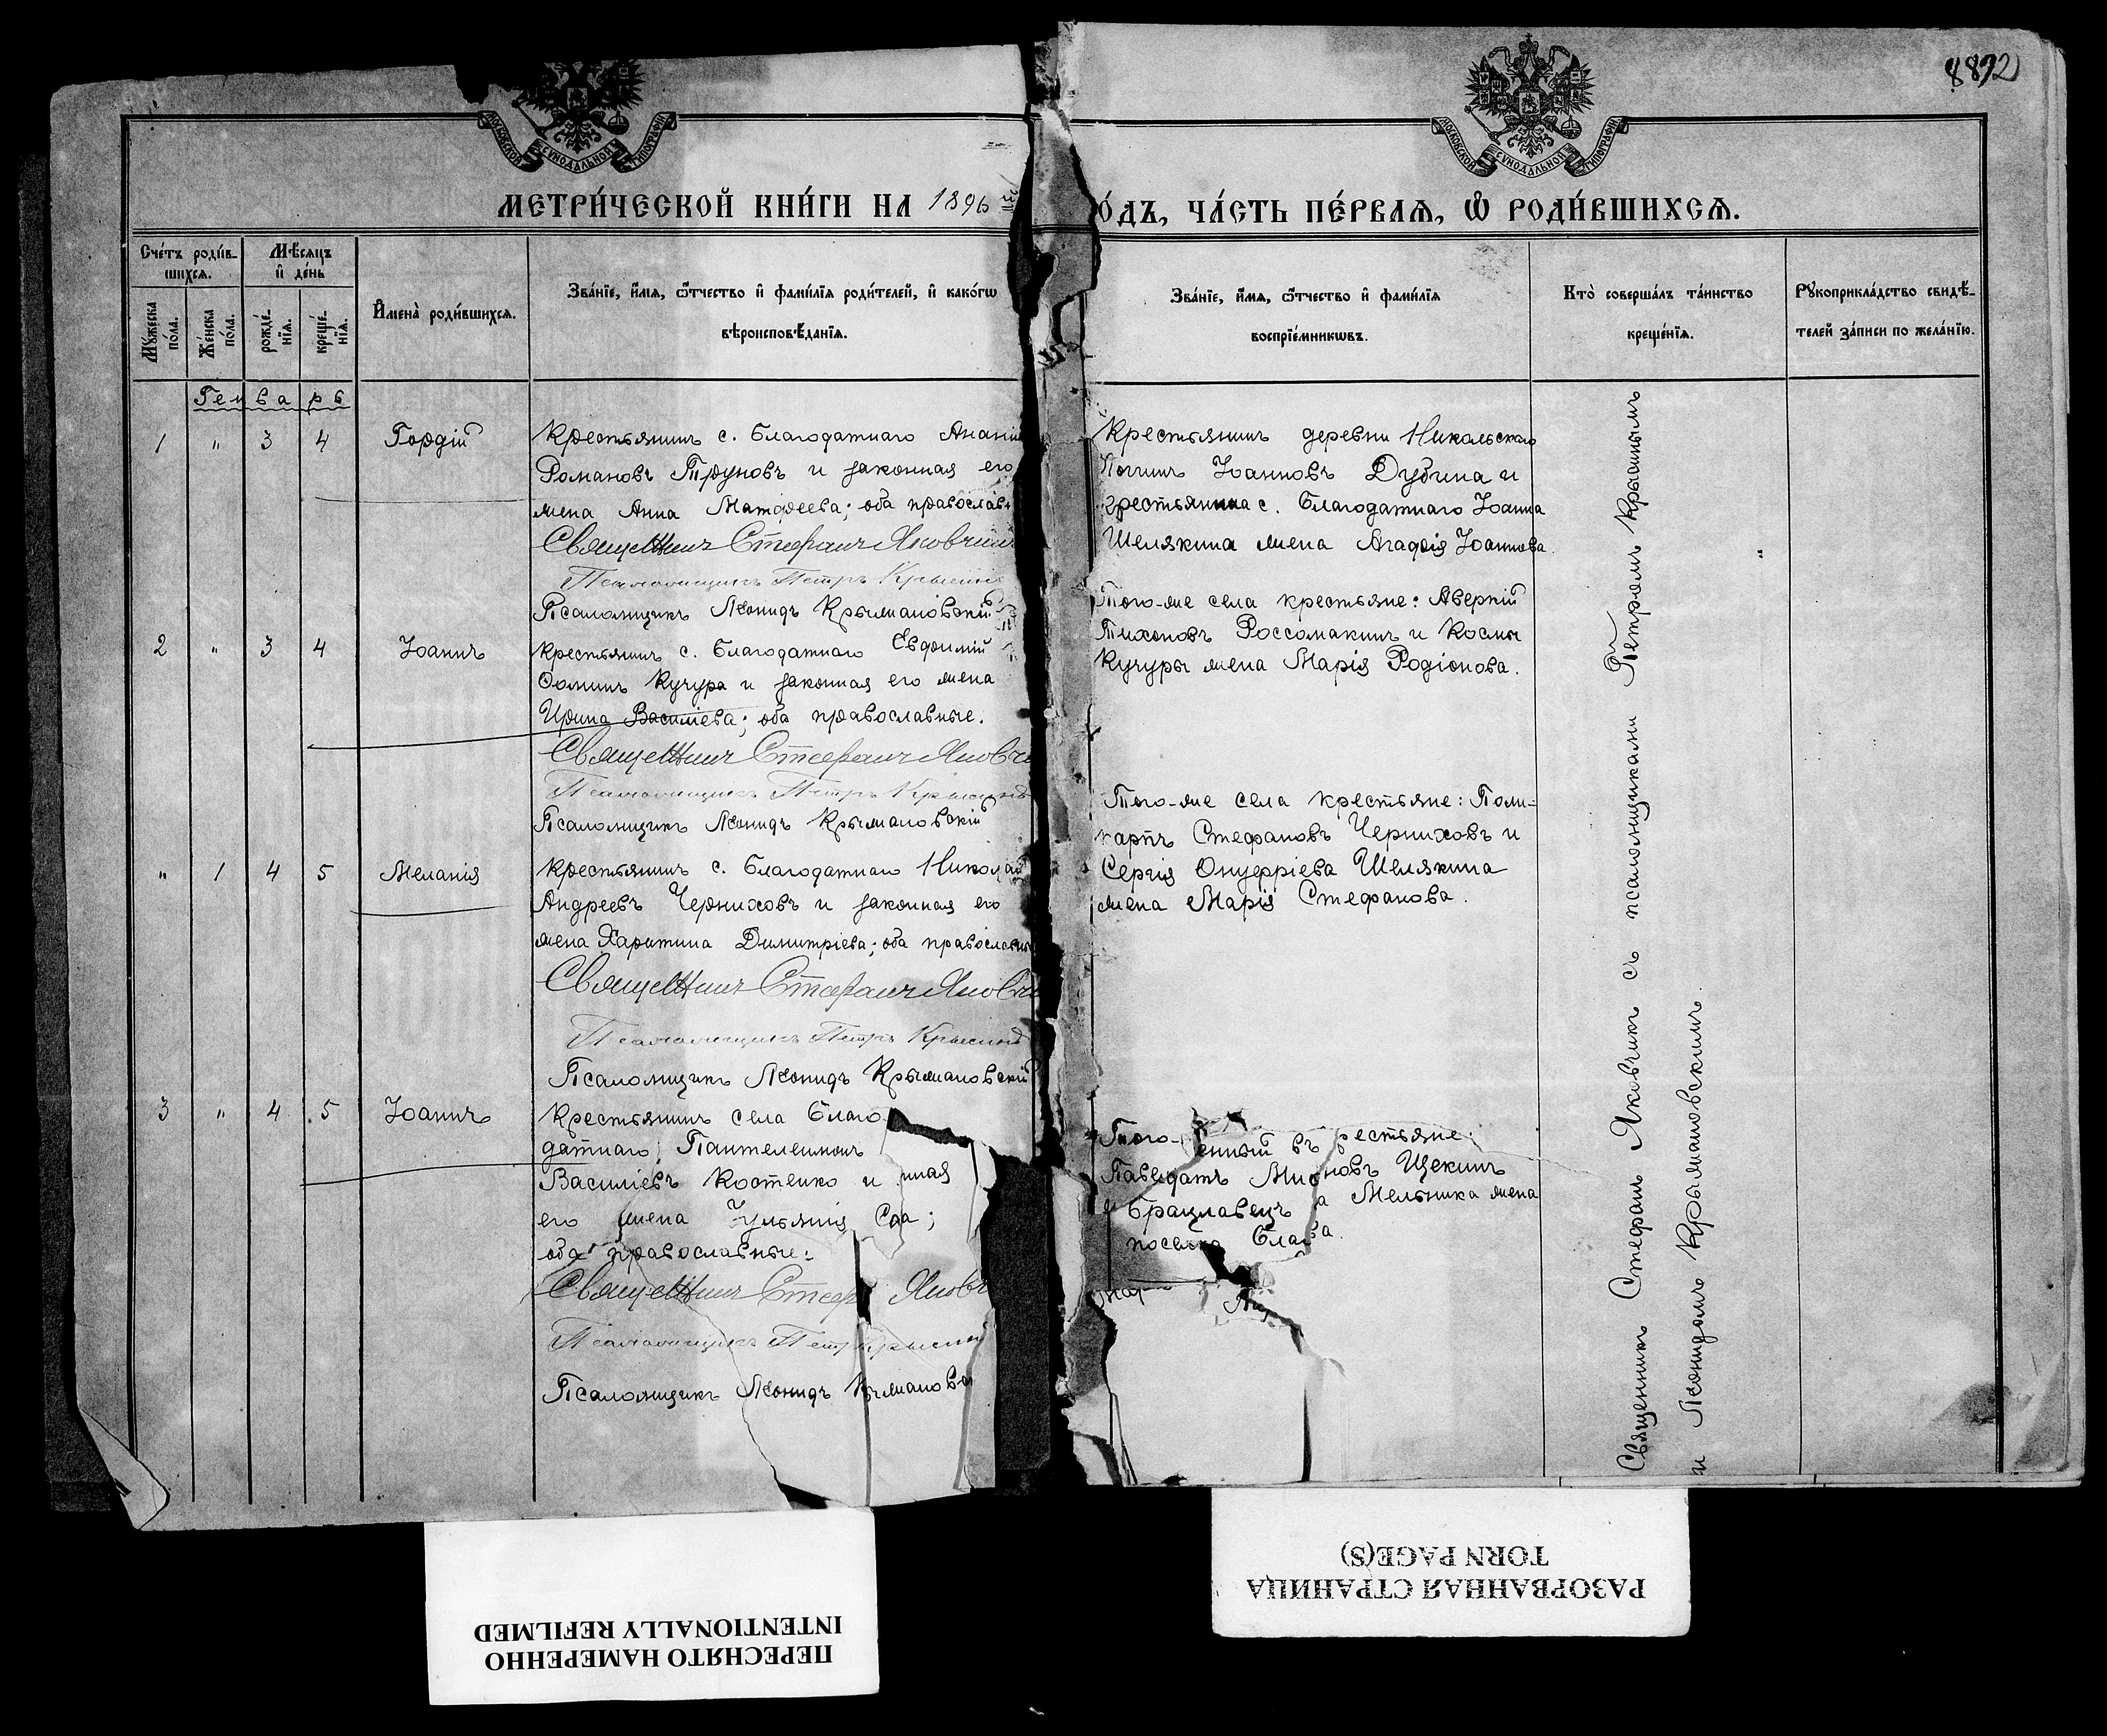 8892
МОСКОВСКОЙ СѴНОДАЛЬНОЙ ТИПОГРАФІИ
МОСКОВСКОЙ СѴНОДАЛЬНОЙ ТИПОГРАФІИ
МЕТРИ́ЧЕСКОЙ КНИ́ГИ НА 1896
О́ДЪ, ЧА́СТЬ ПЕ́РВАѦ, Ѽ РОДИ́ВШИХСѦ.
Сче́тъ роди́в-
шихсѧ.
Мꙋ́жеска по́ла.
Же́нска по́ла.
Мѣ́сѧцъ
и҆ де́нь
рожде́-
нїѧ.
креще́-
нїѧ.
И҆мена̀ роди́вшихсѧ.
Зва́нїе, и҆́мѧ, ѻ҆́тчество и҆ фами́лїѧ роди́телей, и҆ како́гѡ
вѣроисповѣ́данїѧ.
Зва́нїе, и҆́мѧ, ѻ҆́тчество и҆ фами́лїѧ
воспрїе́мникѡвъ.
Кто̀ соверша́лъ та́инство
креще́нїѧ.
Рꙋкоприкла́дство свидѣ́-
телей за́писи по жела́нїю.
Генварь
1 " 3 4 Гордій
Крестьянинъ с. Благодатнаго Ананій
Романовъ Труновъ и законная его
жена Анна Матѳеева; оба православ
Священникъ Стефанъ Яковчик
Псаломщикъ Петръ Крысинъ
Псаломщикъ Леонидъ Крыжановскій
Крестьянинъ деревни Никольскаго
Логинъ Іоанновъ Дубина и
крестьянина с. Благодатнаго Іоанна
Шелякина жена Агафія Іоаннова.
2 " 3 4 Іоаннъ
Крестьянинъ с. Благодатнаго Евфимій
Ѳоминъ Кучура и законная его жена
Ирина Василіева; оба православные.
Священникъ Стефанъ Яковчи
Псаломщикъ Петръ Крысинъ
Псаломщикъ Леонидъ Крыжановскій
Того-же села крестьяне: Аверкій
Тихоновъ Россомакинъ и Космы
Кучуры жена Марія Родіонова.
" 1 4 5 Меланія
Крестьянинъ с. Благодатнаго Николай
Андреевъ Черниховъ и законная его
жена Харитина Димитріева; оба православны
Священникъ Стефанъ Яковчи
Псаломщикъ Петръ Крысинъ
Псаломщикъ Леонидъ Крыжановскій
Того-же села крестьяне: Поли-
карпъ Стефановъ Черниховъ и
Сергія Онуфріева Шелякина
жена Марія Стефанова.
3 " 4 5 Іоаннъ
Крестьянинъ села Благо-
датнаго Пантелеимонъ
Василіевъ Костенко и нная
его жена Іуліанія
оба православные:
Священникъ Стеф Яковч
Псаломщикъ Петръ Крысин
Псаломщикъ Леонидъ
Того- рестьяне:
новъ Щекинъ
Мельника жена
Священникъ Стефанъ Яковчикъ съ псаломщиками Петромъ Крысинымъ
и Леонидомъ Крыжановскимъ.
"
ПЕРЕСНЯТО НАМЕРЕННО
INTENTIONALLY REFILMED
РАЗОРВАННАЯ СТРАНИЦА
TORN PAGE(S)